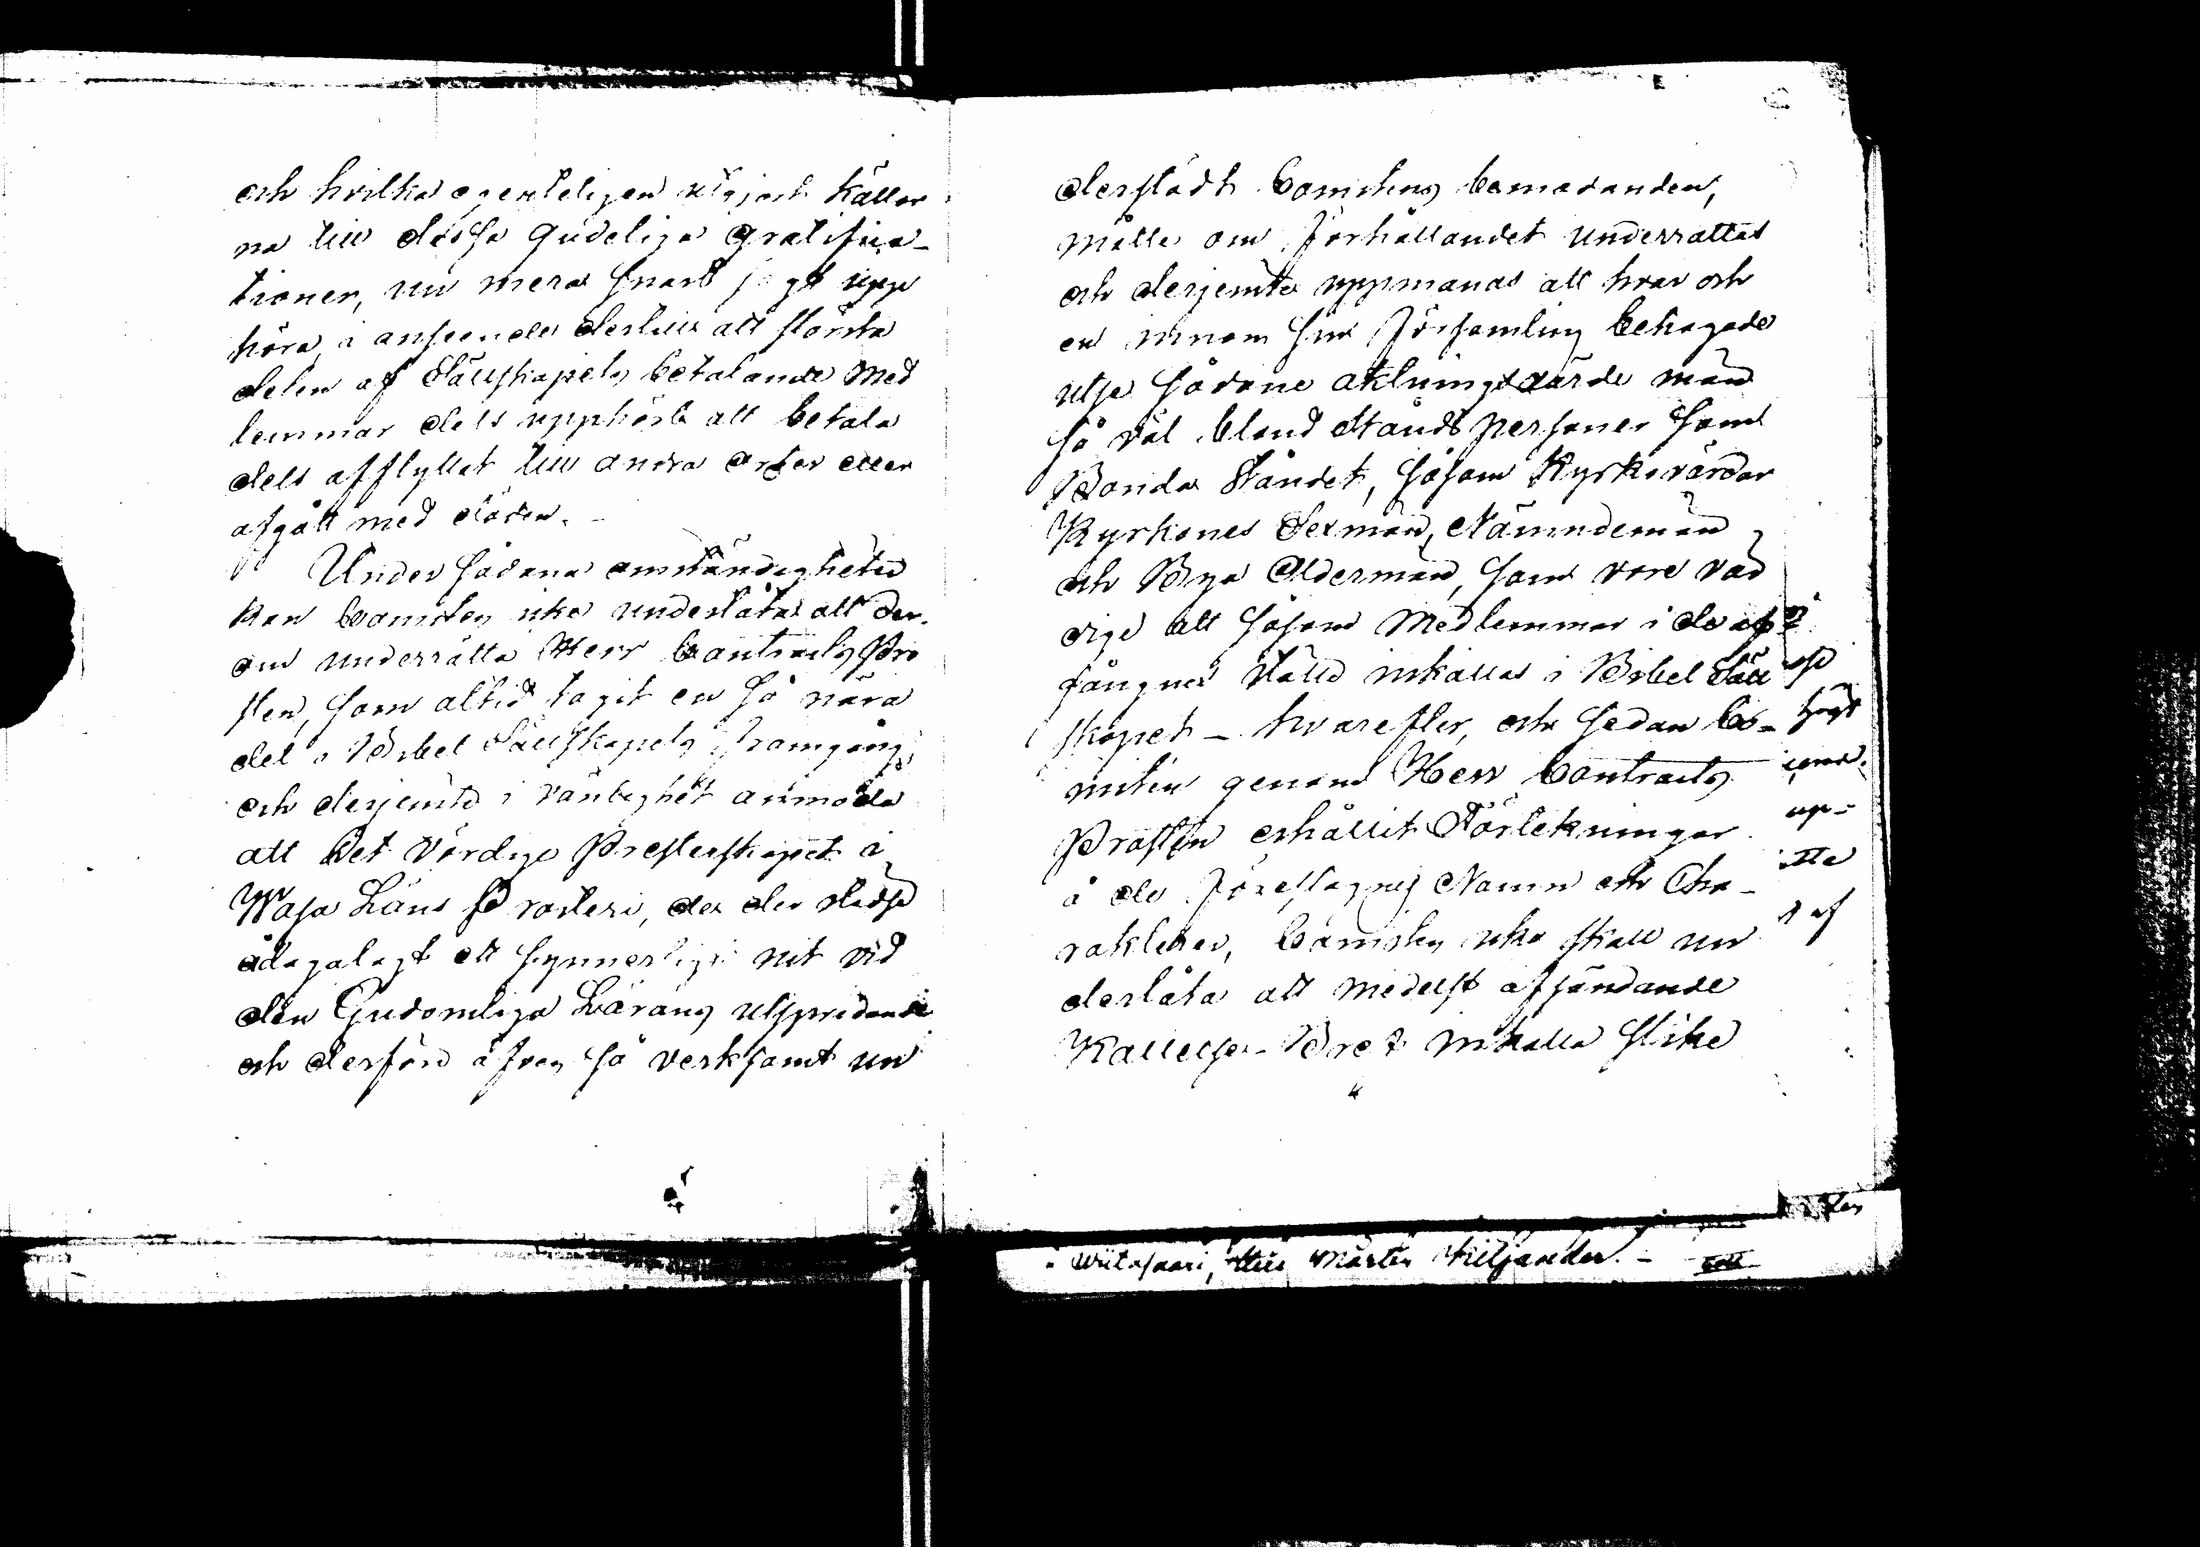 och hvilka egenteligen utgjort källor
na till dessa gudeliga gratifica-
tioner, nu mera snart sagt upp
höra, i anseende dertill att största
delen af Sällskapets betalande Med
lemmar dels upphört att betala
dels afflyttat till andra orter eller
afgått med döden. -
Under sådana omständigheter
kan Comiten icke underlåta att der-
om underrätta Herr Contracts Pro
sten, som altid tagit en så nära
del i Bibel Sällskapets framgång,
och derjemte i vänlighet anmoda
att Det Vördige Presterskapet i
Wasa Läns Prosteri, der der städse
ådagalagt ett synnerligt nit vid
den Gudomliga Lärans utspridande
och derföre äfven så verksamt un
derstödt Comitens bemödanden,
måtte om förhållandet underrättas
och derjemte uppmanas att hvar och
en innom sin församling behagade
utse sådane aktningsvärde män
så väl bland Stånds personer som
Bonde Ståndet, såsom Kyrkovärdar
Kyrkones Sexmän, Nämndemän
och Bya Åldermän, som vore vär
dige att såsom Medlemmar i de af
gångnes ställe inkallas i Bibel Säll
skapet - hvarefter, och sedan Co-
miten genom Herr Contracts
Prosten erhållit Förtekningar
å de föreslagnes Namn och Cha-
rakterer, Comiten icke skall un
derlåta att medelst afsändande
Kallelse-Bref inkalla slike
högt
up-
af
i Wiitasaari, Mårten Kiljander. -